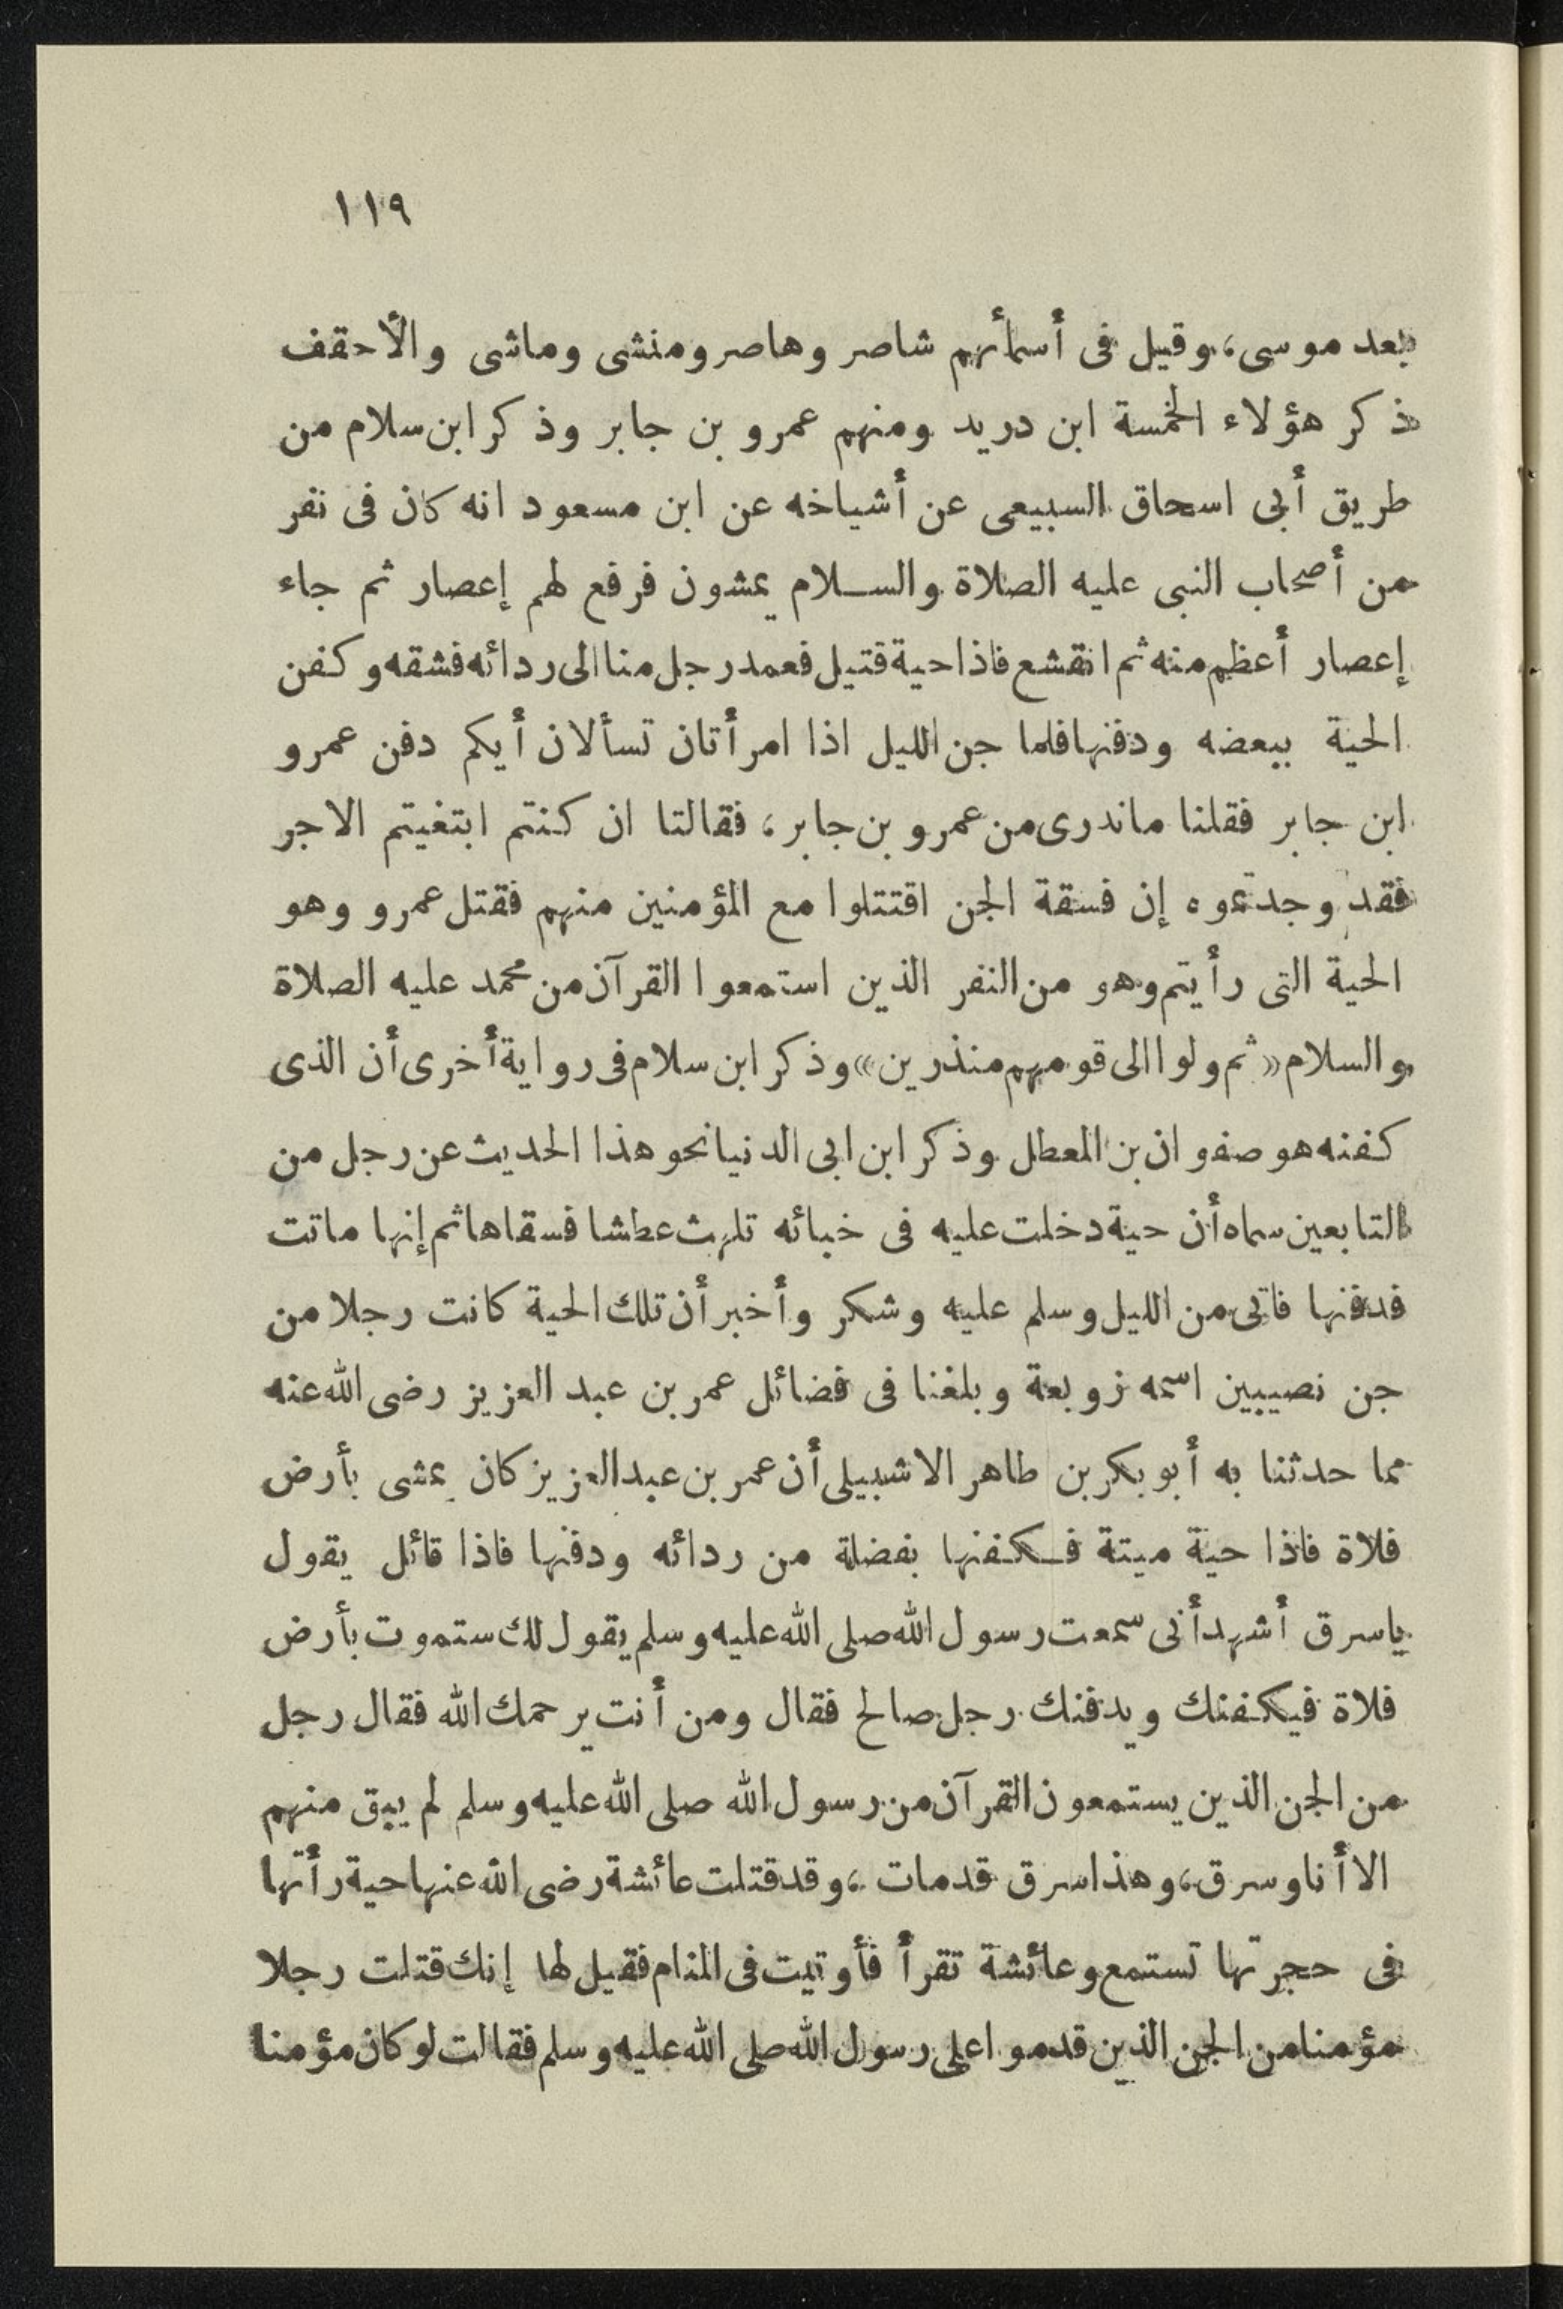 ١١٩
بعد موسى، وقيل فى أسمأئهم شاصر وهاصر ومنشى وماشى والأحقف
ذكر هؤلاء الخمسة ابن دريد ومنهم عمرو بن جابر وذكر ابن سلام من
طريق أبى اسحاق السبيعى عن أشياخه عن ابن مسعود انه كان فى نفر
من أصحاب النبى عليه الصلاة والسلام يمشون فرفع لهم إعصار ثم جاء
إعصار أعظم منه ثم انقشع فاذا حية قتيل فعمد رجل منا الى ردائه فشقه وكفن
الحية ببعضه ودفنها فلما جن الليل اذا امرأتان تسألان أيكم دفن عمرو
ابن جابر فقلنا ماندرى من عمرو بن جابر، فقالتا ان كنتم ابتغيتم الاجر
فقد وجدتموه إن فسقة الجن اقتتلوا مع المؤمنين منهم فقتل عمرو وهو
الحية التى رأيتم وهو من النفر الذين استمعوا القرآن من محمد عليه الصلاة
والسلام «ثم ولوا الى قومهم منذرين» وذكر ابن سلام فى رواية أخرى أن الذى
كفنه هو صفوان بن المعطل وذكر ابن ابى الدنيا نحو هذا الحديث عن رجل من
التابعين سماه أن حية دخلت عليه فى خبائه تلهث عطشا فسقاها ثم إنها ماتت
فدفنها فاتى من الليل وسلم عليه وشكر وأخبر أن تلك الحية كانت رجلا من
جن نصيبين اسمه زوبعة وبلغنا فى فضائل عمر بن عبد العزيز رضى الله عنه
مما حدثنا به أبو بكر بن طاهر الاشبيلى أن عمر بن عبد العزيز كان يمشى بأرض
فلاة فاذا حية ميتة فكفنها بفضلة من ردائه ودفنها فاذا قائل يقول
ياسرق أشهد أنى سمعت رسول الله صلى الله عليه وسلم يقول لك ستموت بأرض
فلاة فيكفنك ويدفنك رجل صالح فقال ومن أنت يرحمك الله فقال رجل
من الجن الذين يستمعون القرآن من رسول الله صلى الله عليه وسلم لم يبق منهم
الا أنا وسرق، وهذا سرق قد مات، وقد قتلت عائشة رضى الله عنها حية رأتها
فى حجرتها تستمع وعائشة تقرأ فأوتيت فى المنام فقيل لها إنك قتلت رجلا
مؤمنا من الجن الذين قدموا على رسول الله صلى الله عليه وسلم فقالت لو كان مؤمنا